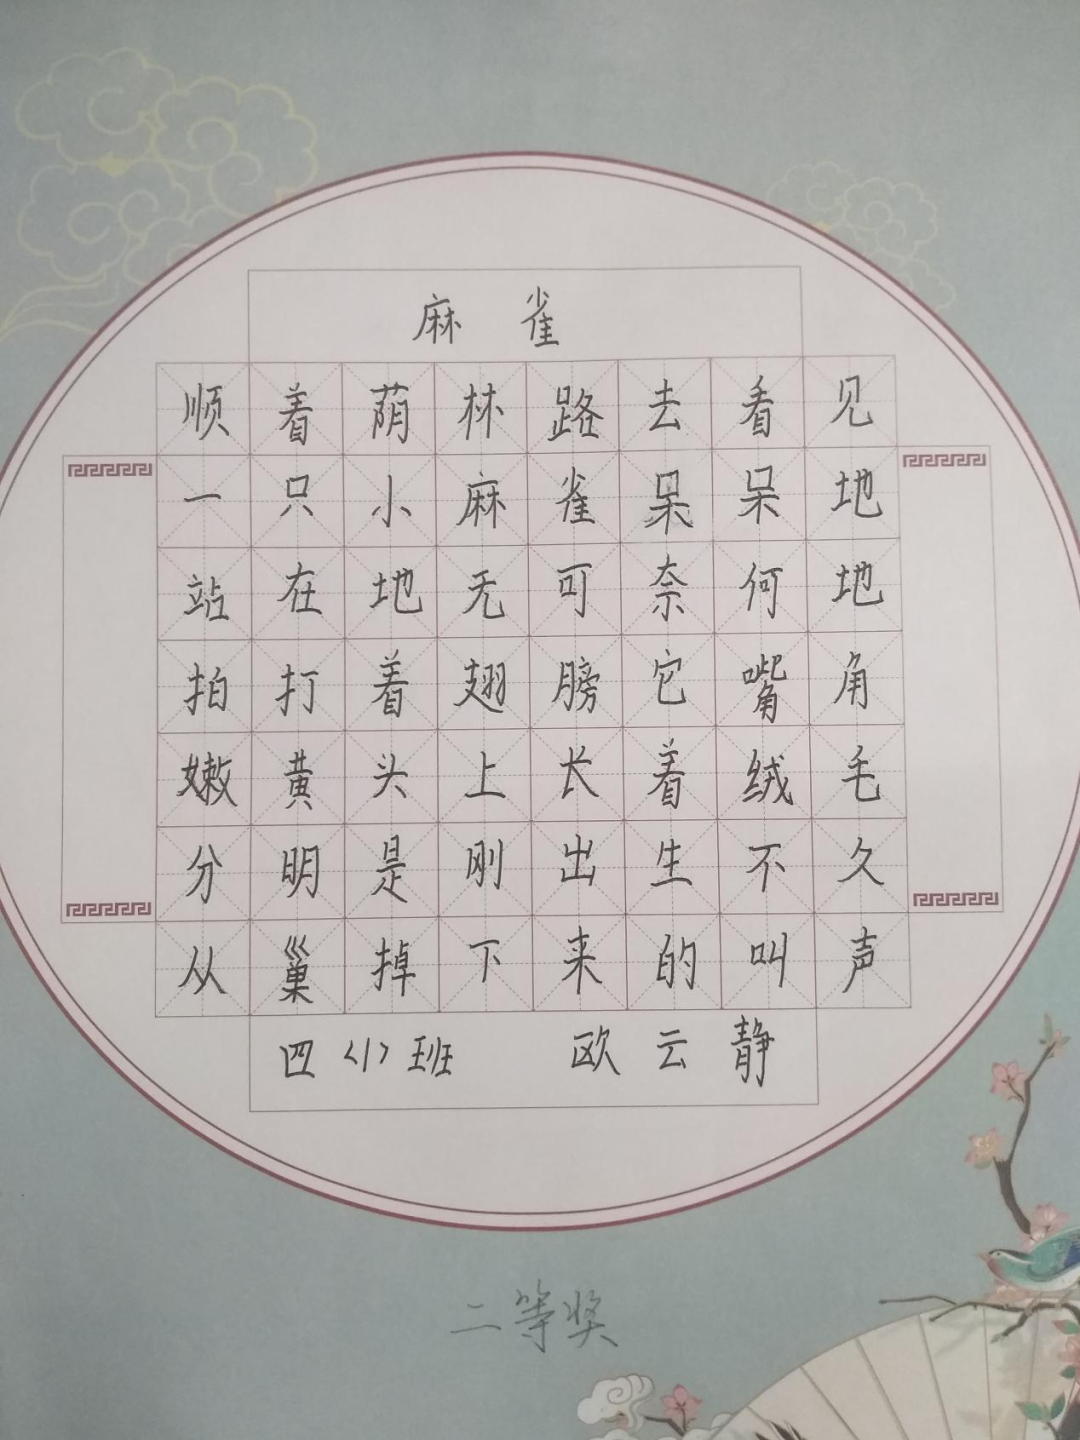 麻雀
顺着荫林路去看见
一只小麻雀呆呆地
站在地无可奈何地
拍打着翅膀它嘴角
嫩黄头上长着绒毛
分明是刚出生不久
从巢掉下来的叫声
四〈1〉班 欧云静
二等奖